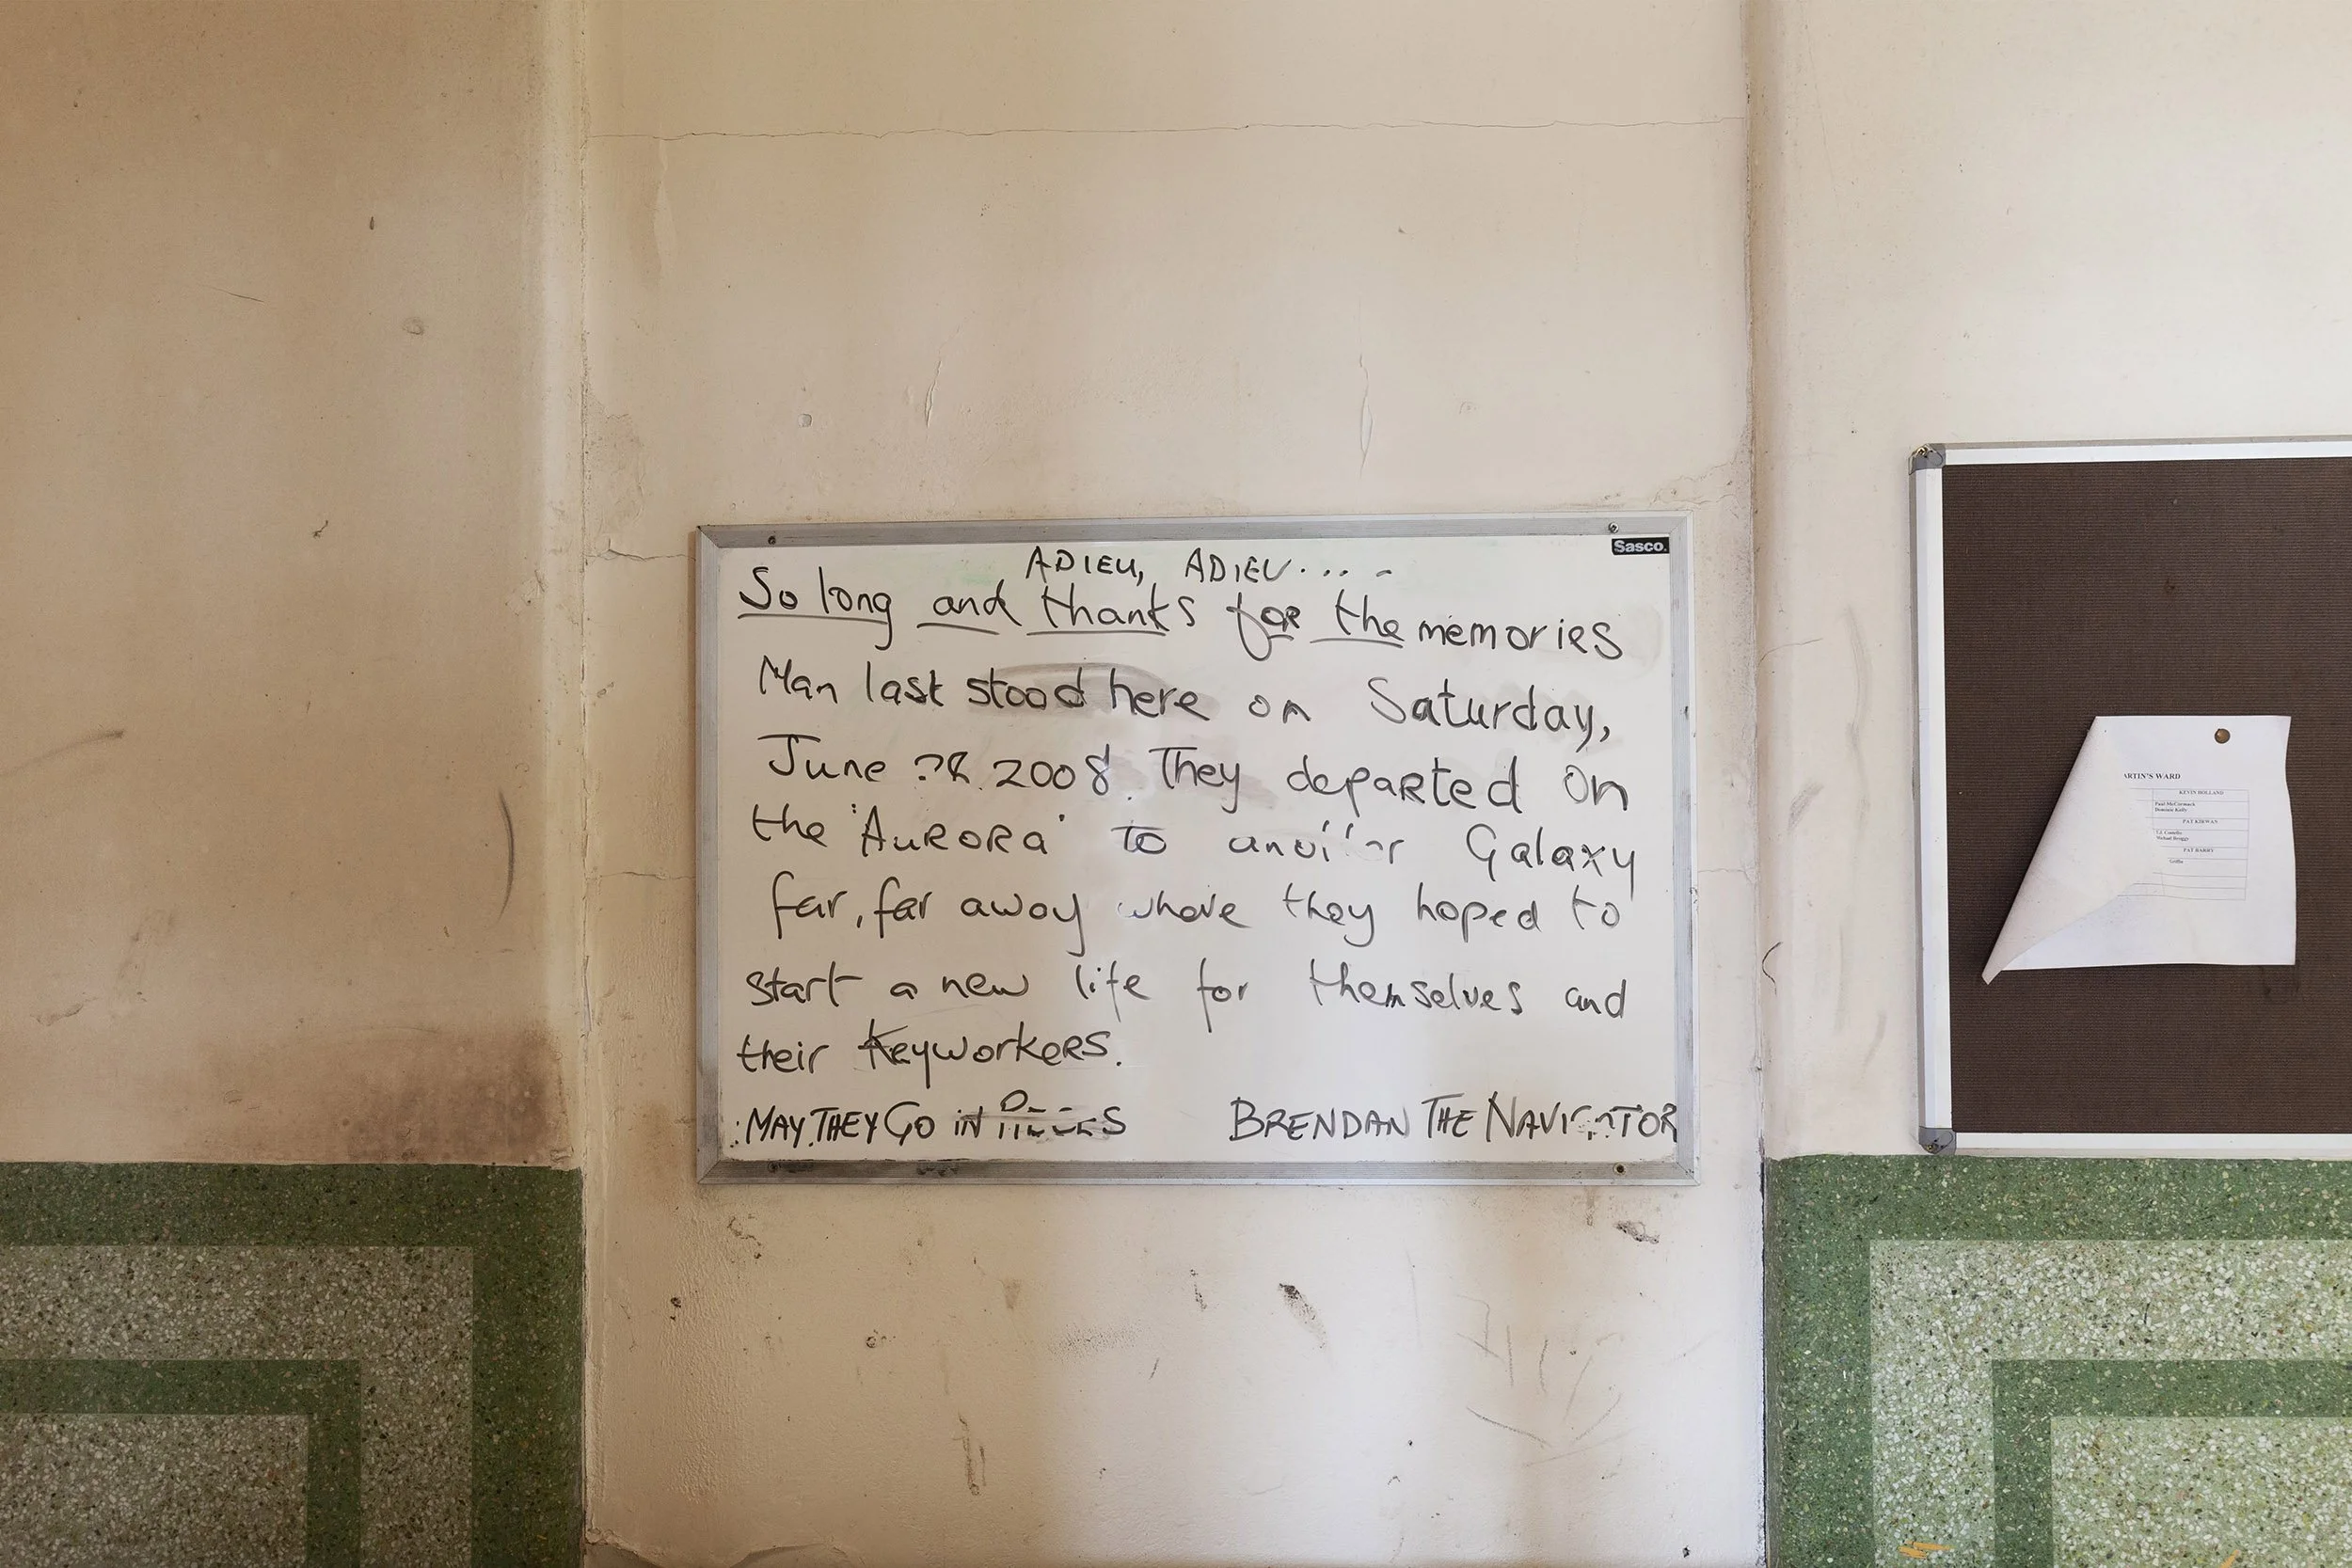 Sasco.
ADIEU, ADIEU....-
So long and thanks for the memories
Man last stood here on Saturday,
June 2008. They departed on
the 'AURORA' to Galaxy
far, far away where they hoped to
start a new life for themselves and
their KeyworkeRS.
MAY THEY GO IN
BRENDAN THE
ARTIN'S WARD
KEVIN HOLLAND
Paul McCormack
Dominic Kelly
PAT KIRWAN
PAT BARRY
Griffin